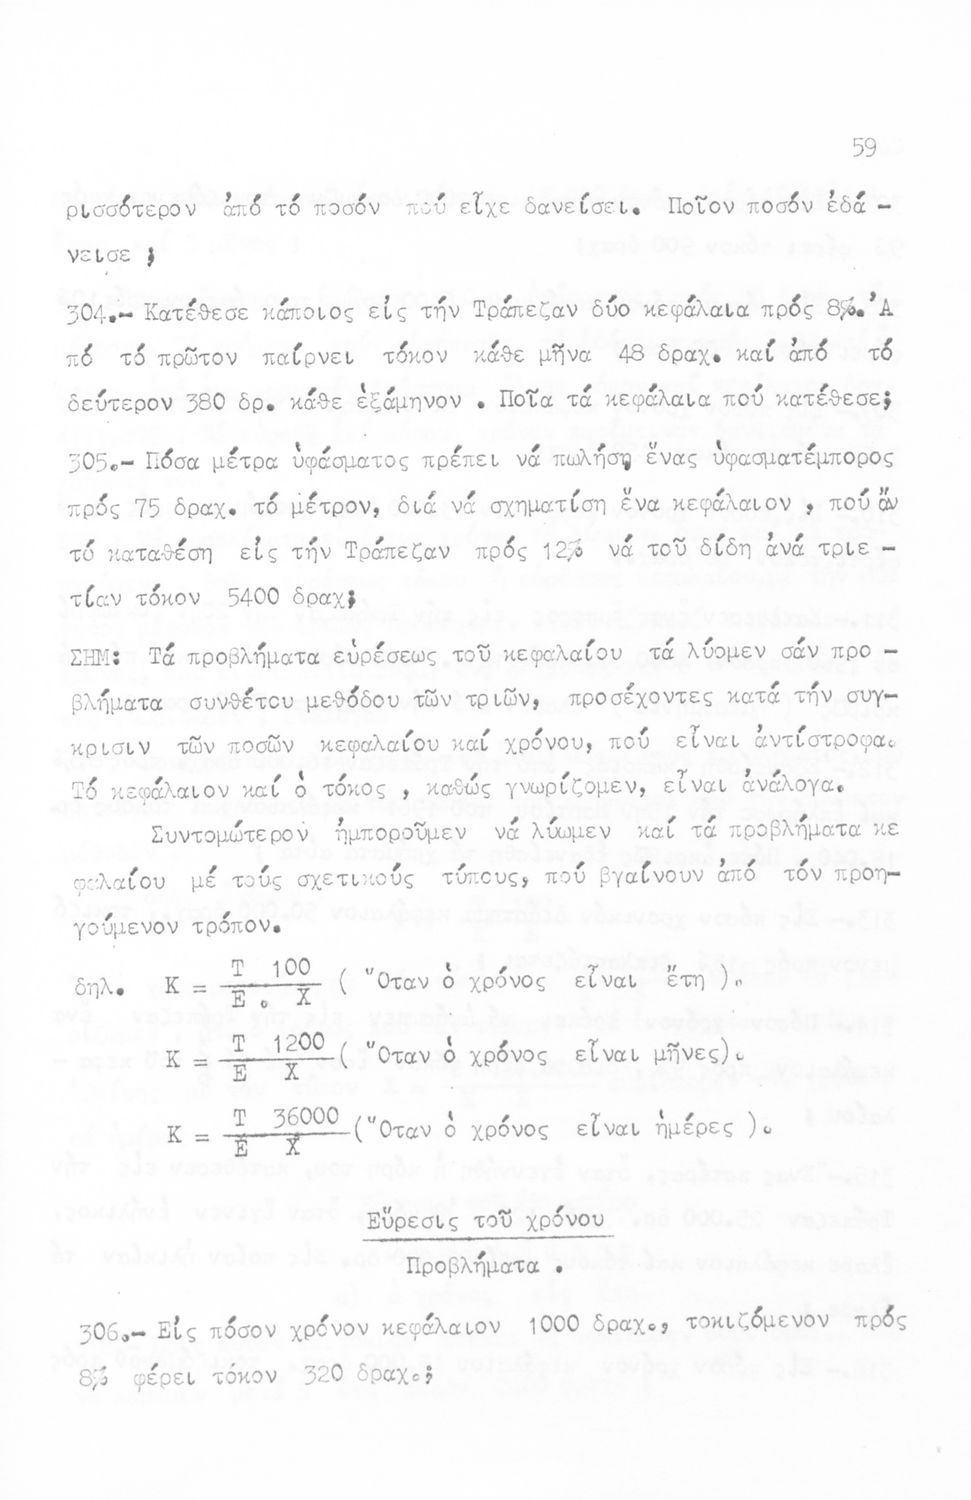 59
ρισσότερον ἀπό τό ποσόν πού εἶχε δανείσει. Ποῖον ποσόν ἐδά –
νεισε ;
304.– Κατέθεσε κάποιος εἰς τήν Τράπεζαν δύο κεφάλαια πρός 8%. Ἀ
πό τό πρῶτον παίρνει τόκον κάθε μῆνα 48 δραχ. καί ἀπό τό
δεύτερον 380 δρ. κάθε ἑξάμηνον . Ποῖα τά κεφάλαια πού κατέθεσε;
305.– Πόσα μέτρα ὑφάσματος πρέπει νά πωλήσῃ ἕνας ὑφασματέμπορος
πρός 75 δραχ. τό μέτρον, διά νά σχηματίση ἕνα κεφάλαιον , πού ἄν
τό καταθέση εἰς τήν Τράπεζαν πρός 12% νά τοῦ δίδη ἀνά τριε –
τίαν τόκον 5400 δραχ;
ΣΗΜ: Τά προβλήματα εὑρέσεως τοῦ κεφαλαίου τά λύομεν σάν προ –
βλήματα συνθέτου μεθόδου τῶν τριῶν, προσέχοντες κατά τήν συγ–
κρισιν τῶν ποσῶν κεφαλαίου καί χρόνου, πού εἶναι ἀντίστροφα.
Τό κεφάλαιον καί ὁ τόκος , καθώς γνωρίζομεν, εἶναι ἀνάλογα.
Συντομώτερον ἠμποροῦμεν νά λύωμεν καί τά προβλήματα κε
φαλαίου μέ τούς σχετικούς τύπους, πού βγαίνουν ἀπό τόν προη–
γούμενον τρόπον.
δηλ. Κ = Τ 100 / Ε . Χ ( Ὅταν ὁ χρόνος εἶναι ἔτη ).
Κ = Τ 1200 / Ε Χ ( Ὅταν ὁ χρόνος εἶναι μῆνες).
Κ = Τ 36000 / Ε Χ (Ὅταν ὁ χρόνος εἶναι ἡμέρες ).
Εὕρεσις τοῦ χρόνου
Προβλήματα .
306.– Εἰς πόσον χρόνον κεφάλαιον 1000 δραχ., τοκιζόμενον πρός
8% φέρει τόκον 320 δραχ.;